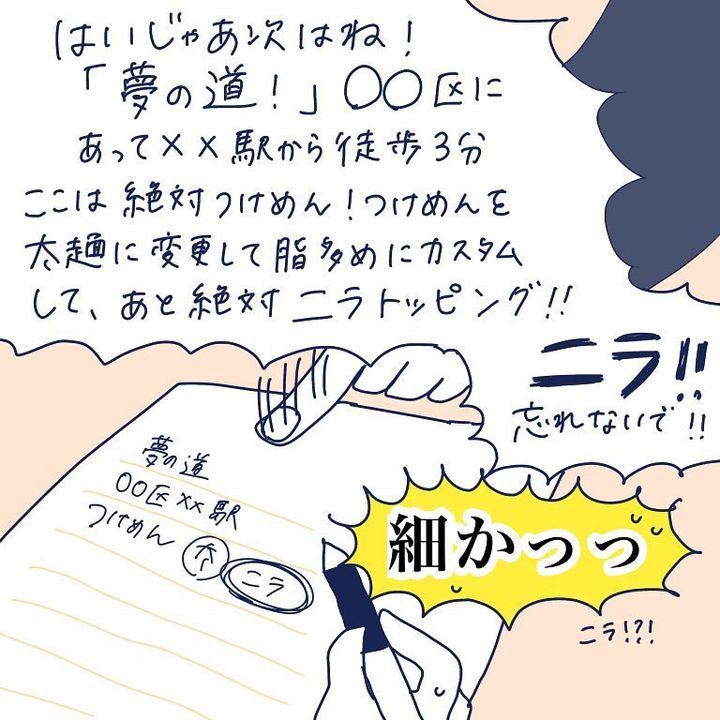 はいじゃあ次はね！
「夢の道！」〇〇区に
あって××駅から徒歩3分
ここは絶対つけめん！つけめんを
太麺に変更して脂多めにカスタム
して、あと絶対ニラトッピング!!
ニラ!!
忘れないで!!
夢の道
〇〇区××駅
つけめん 太 ニラ
細かっっ
ニラ!?!